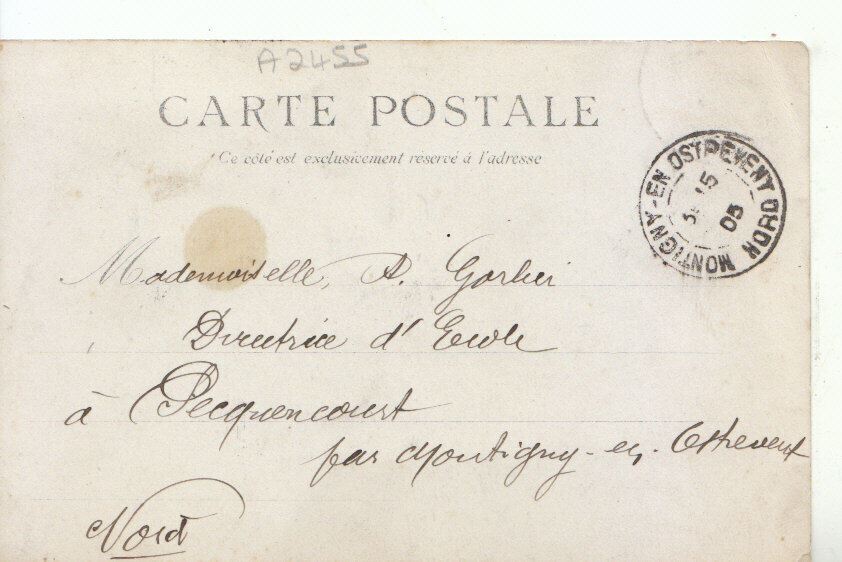 A2455
CARTE POSTALE
Ce côté est exclusivement réservé à l'adresse
MONTIGNY-EN-OSTREVENT NORD
15
05
Mademoiselle, A.
Directrice d' Ecole
à Pecquencourt
par Montigny-en-Ostrevent
Nord